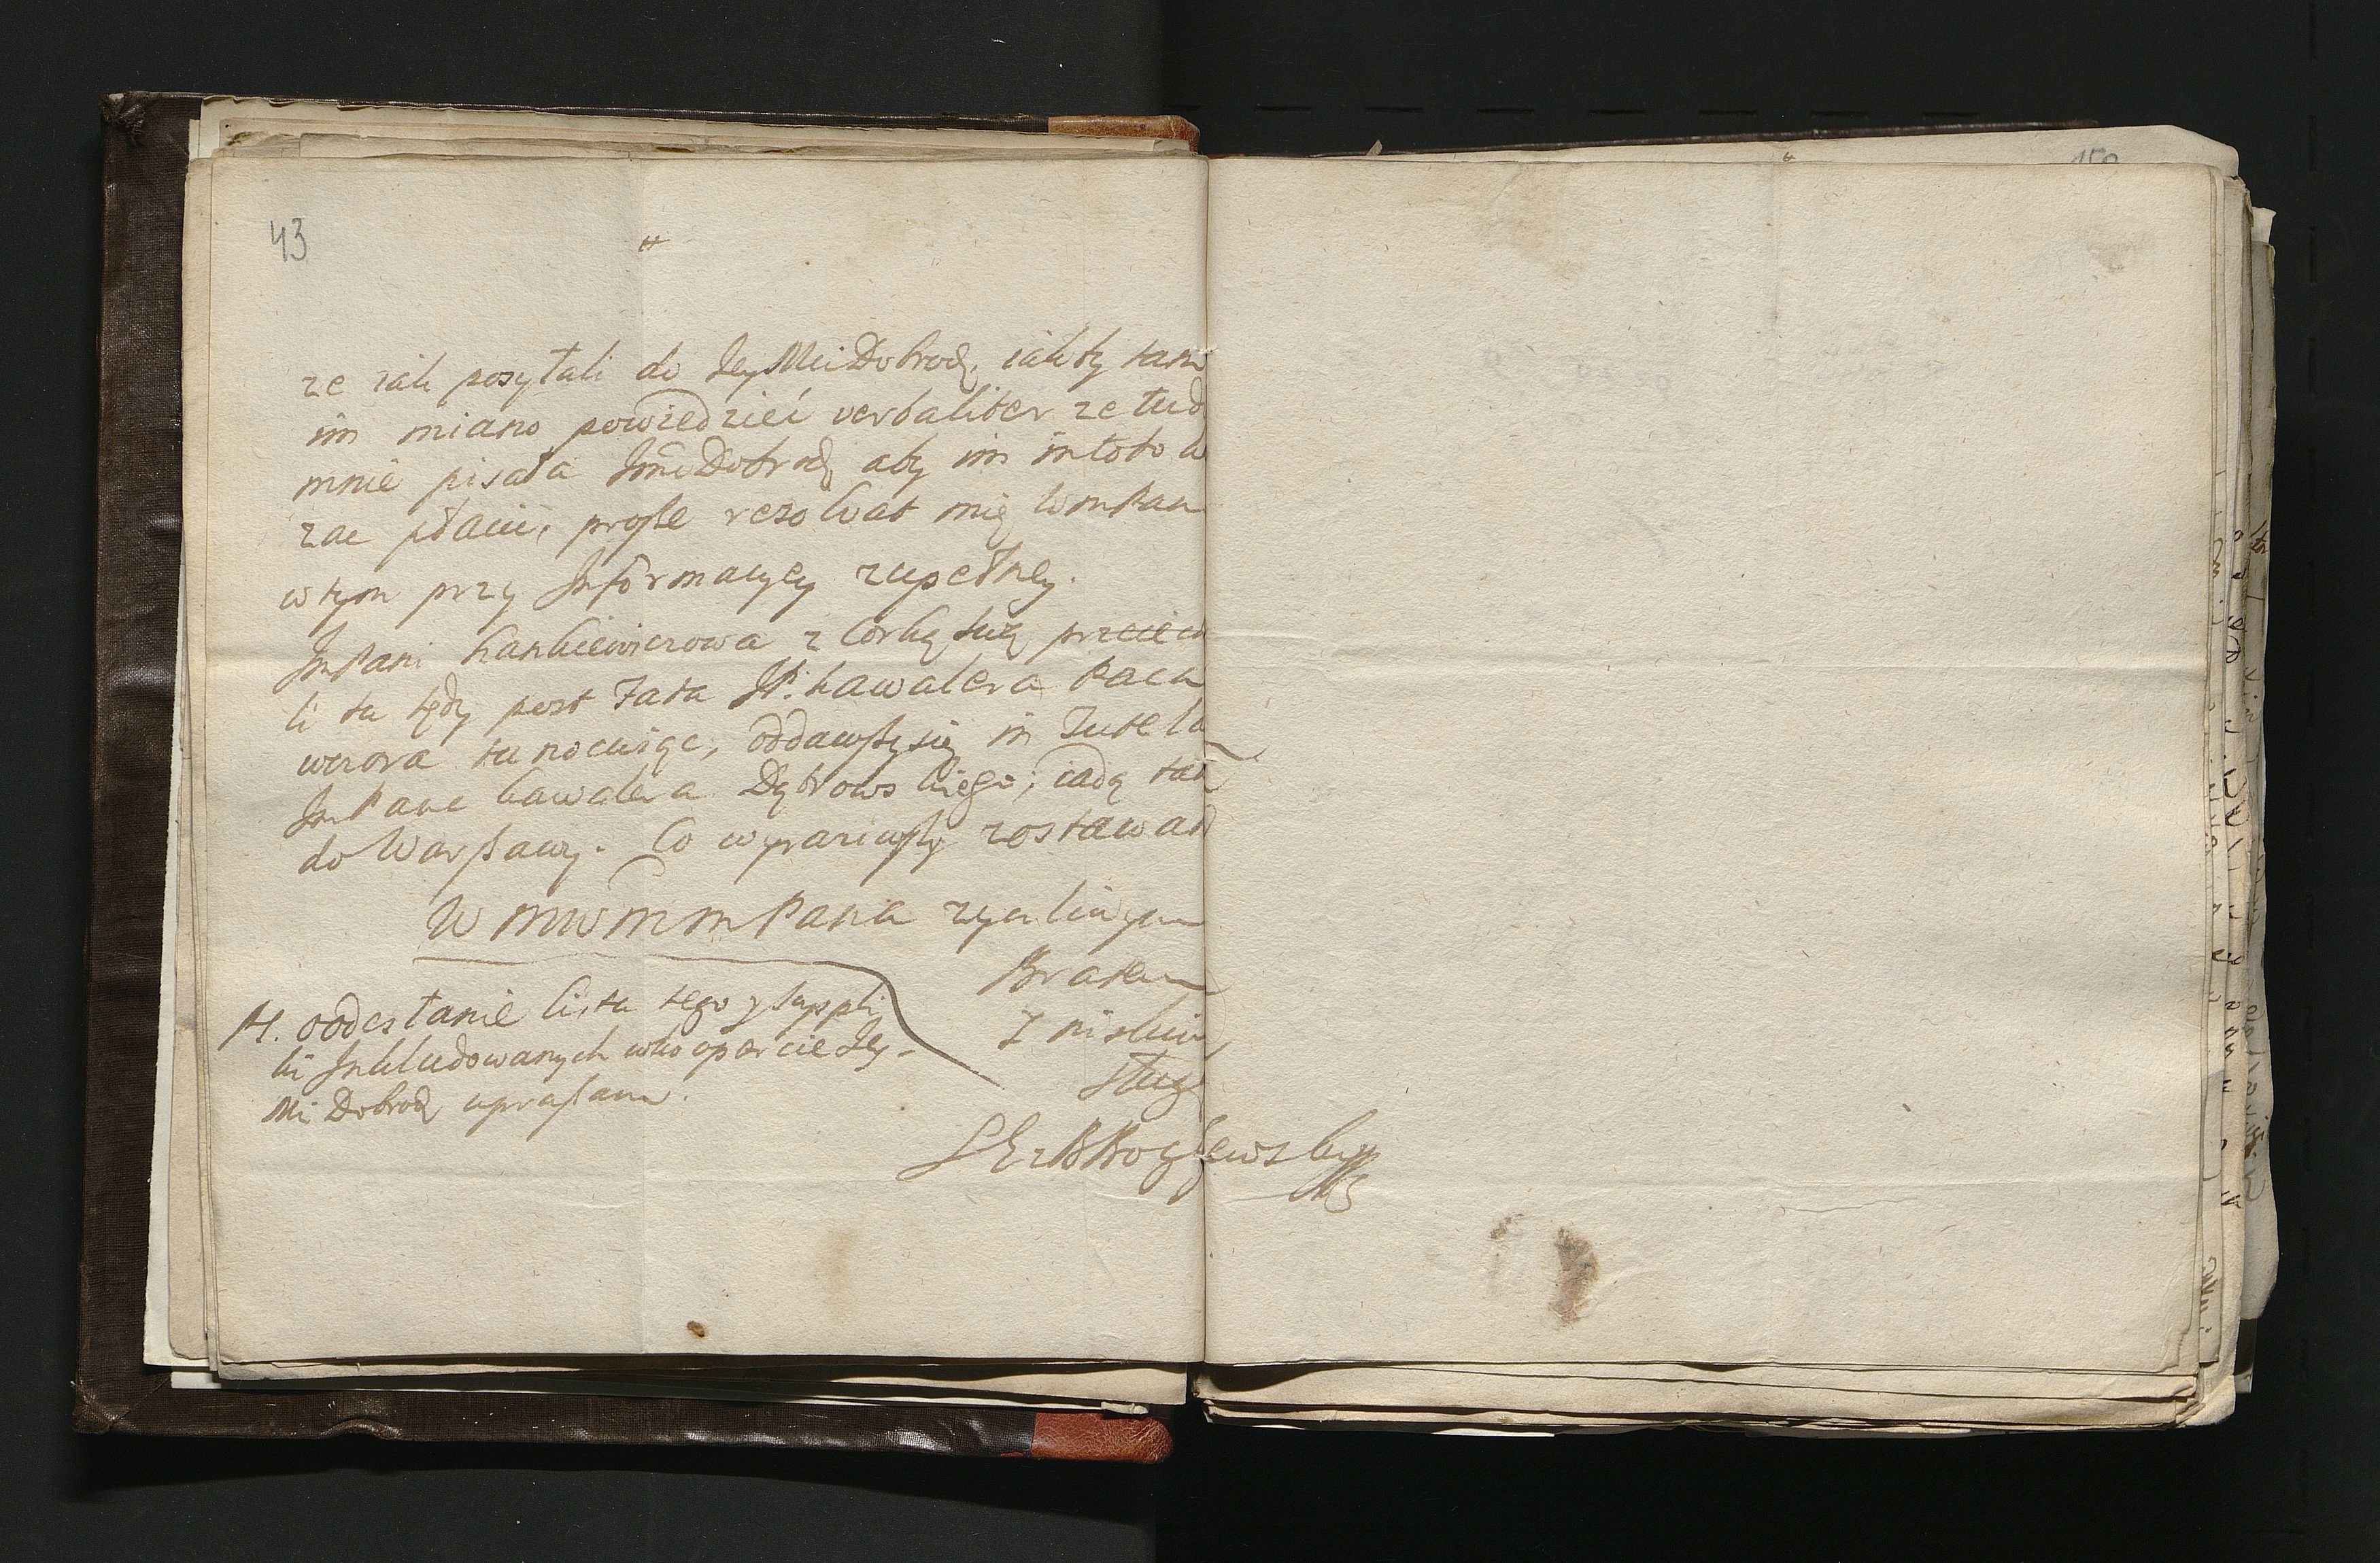 43
ze iak posyłali do JeyMciDobrodz. iakoby tam
im miano powiedzieć verbaliter ze tud
mnie pisała JmciDobrodz aby im intoto
zac płacić, proszę rezolwat mię WmPan
w tym przy Informacyey zupełney.
JmPani Hankiewiczowa z Corką swą
li tu tędy post fata JP. Kawalera
wczora tu nocuiąc, oddawszy się in Tutela
JmPana Kawalera Dąbrowskiego; iadą tam
do Warszawy. Co wyraziwszy zostawam
WMWMmPana życzliwym
Bratem
I niskim
sługą
PS. oddesłanie listu tego y suppli
ki Inkludowanych Jey-
Mci Dobrodz upraszam.